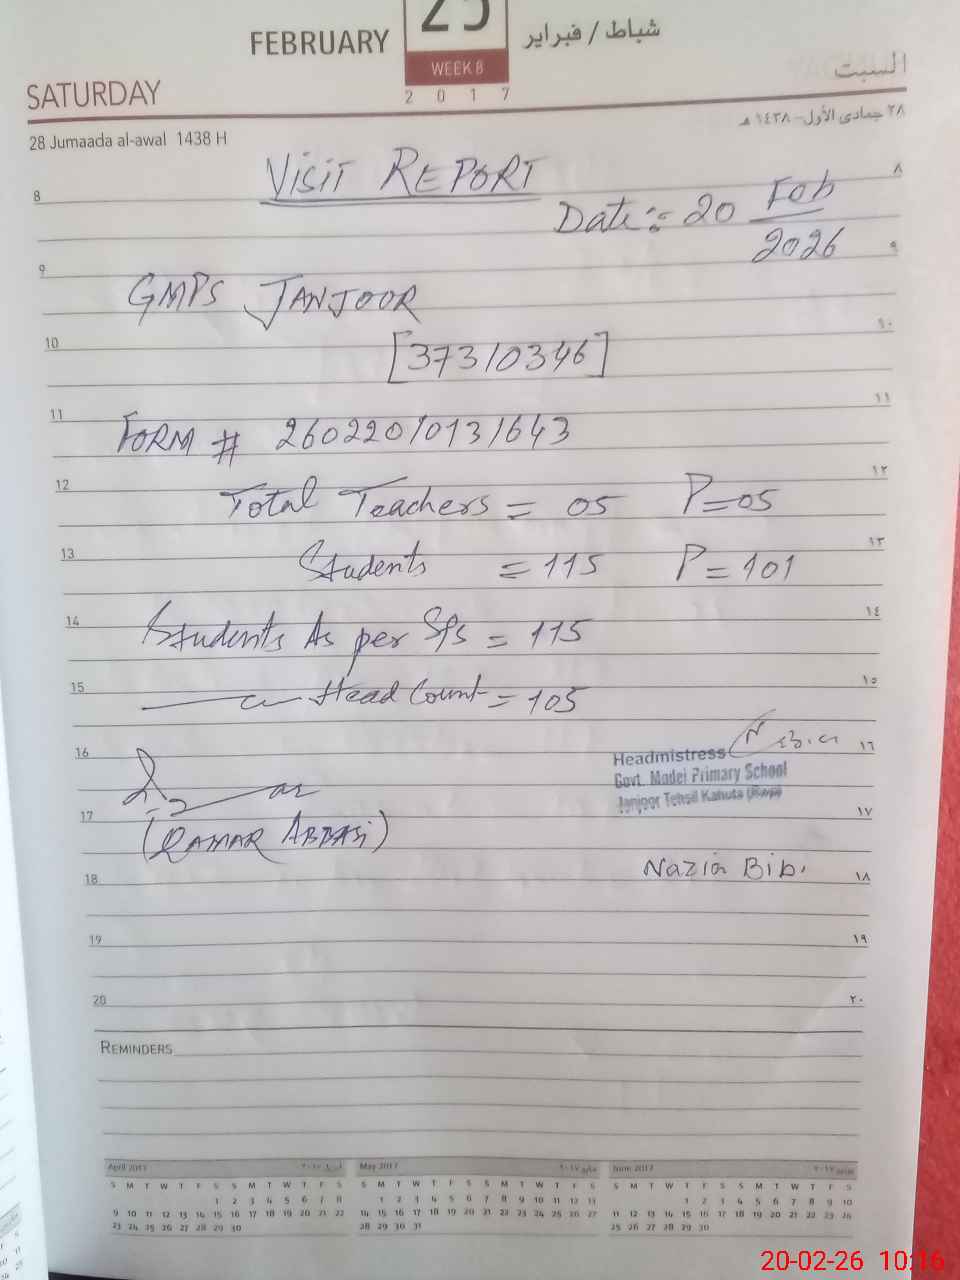 FEBRUARY 25 شباط / فبراير
WEEK 8
SATURDAY 2 0 1 7 السبت
28 Jumaada al-awal 1438 H ٢٨ جمادى الأول - ١٤٣٨ هـ
VISIT REPORT
8 ٨
Date:- 20 Feb
2026
9 ٩
GMPS JANJOOR
10 ١٠
[37310346]
11 ١١
FORM # 26022010131643
12 ١٢
Total Teachers = 05 P=05
13 ١٣
Students = 115 P=101
14 ١٤
Students As per SIS = 115
15 ١٥
Head Count = 105
16 ١٦
Headmistress
Govt. Model Primary School
Janjoor Tehsil Kahuta (Rwp)
17 ١٧
(QAMAR ABBASI)
Nazia Bibi
18 ١٨
19 ١٩
20 ٢٠
REMINDERS
April 2017 أبريل ٢٠١٧ May 2017 مايو ٢٠١٧ June 2017 يونيو ٢٠١٧
S M T W T F S S M T W T F S S M T W T F S
1 2 3 4 5 6 7 8 1 2 3 4 5 6 7 8 9 10 11 12 13 1 2 3 4 5 6 7 8 9 10
9 10 11 12 13 14 15 16 17 18 19 20 21 22 14 15 16 17 18 19 20 21 22 23 24 25 26 27 11 12 13 14 15 16 17 18 19 20 21 22 23 24
23 24 25 26 27 28 29 30 28 29 30 31 25 26 27 28 29 30
20-02-26 10:16